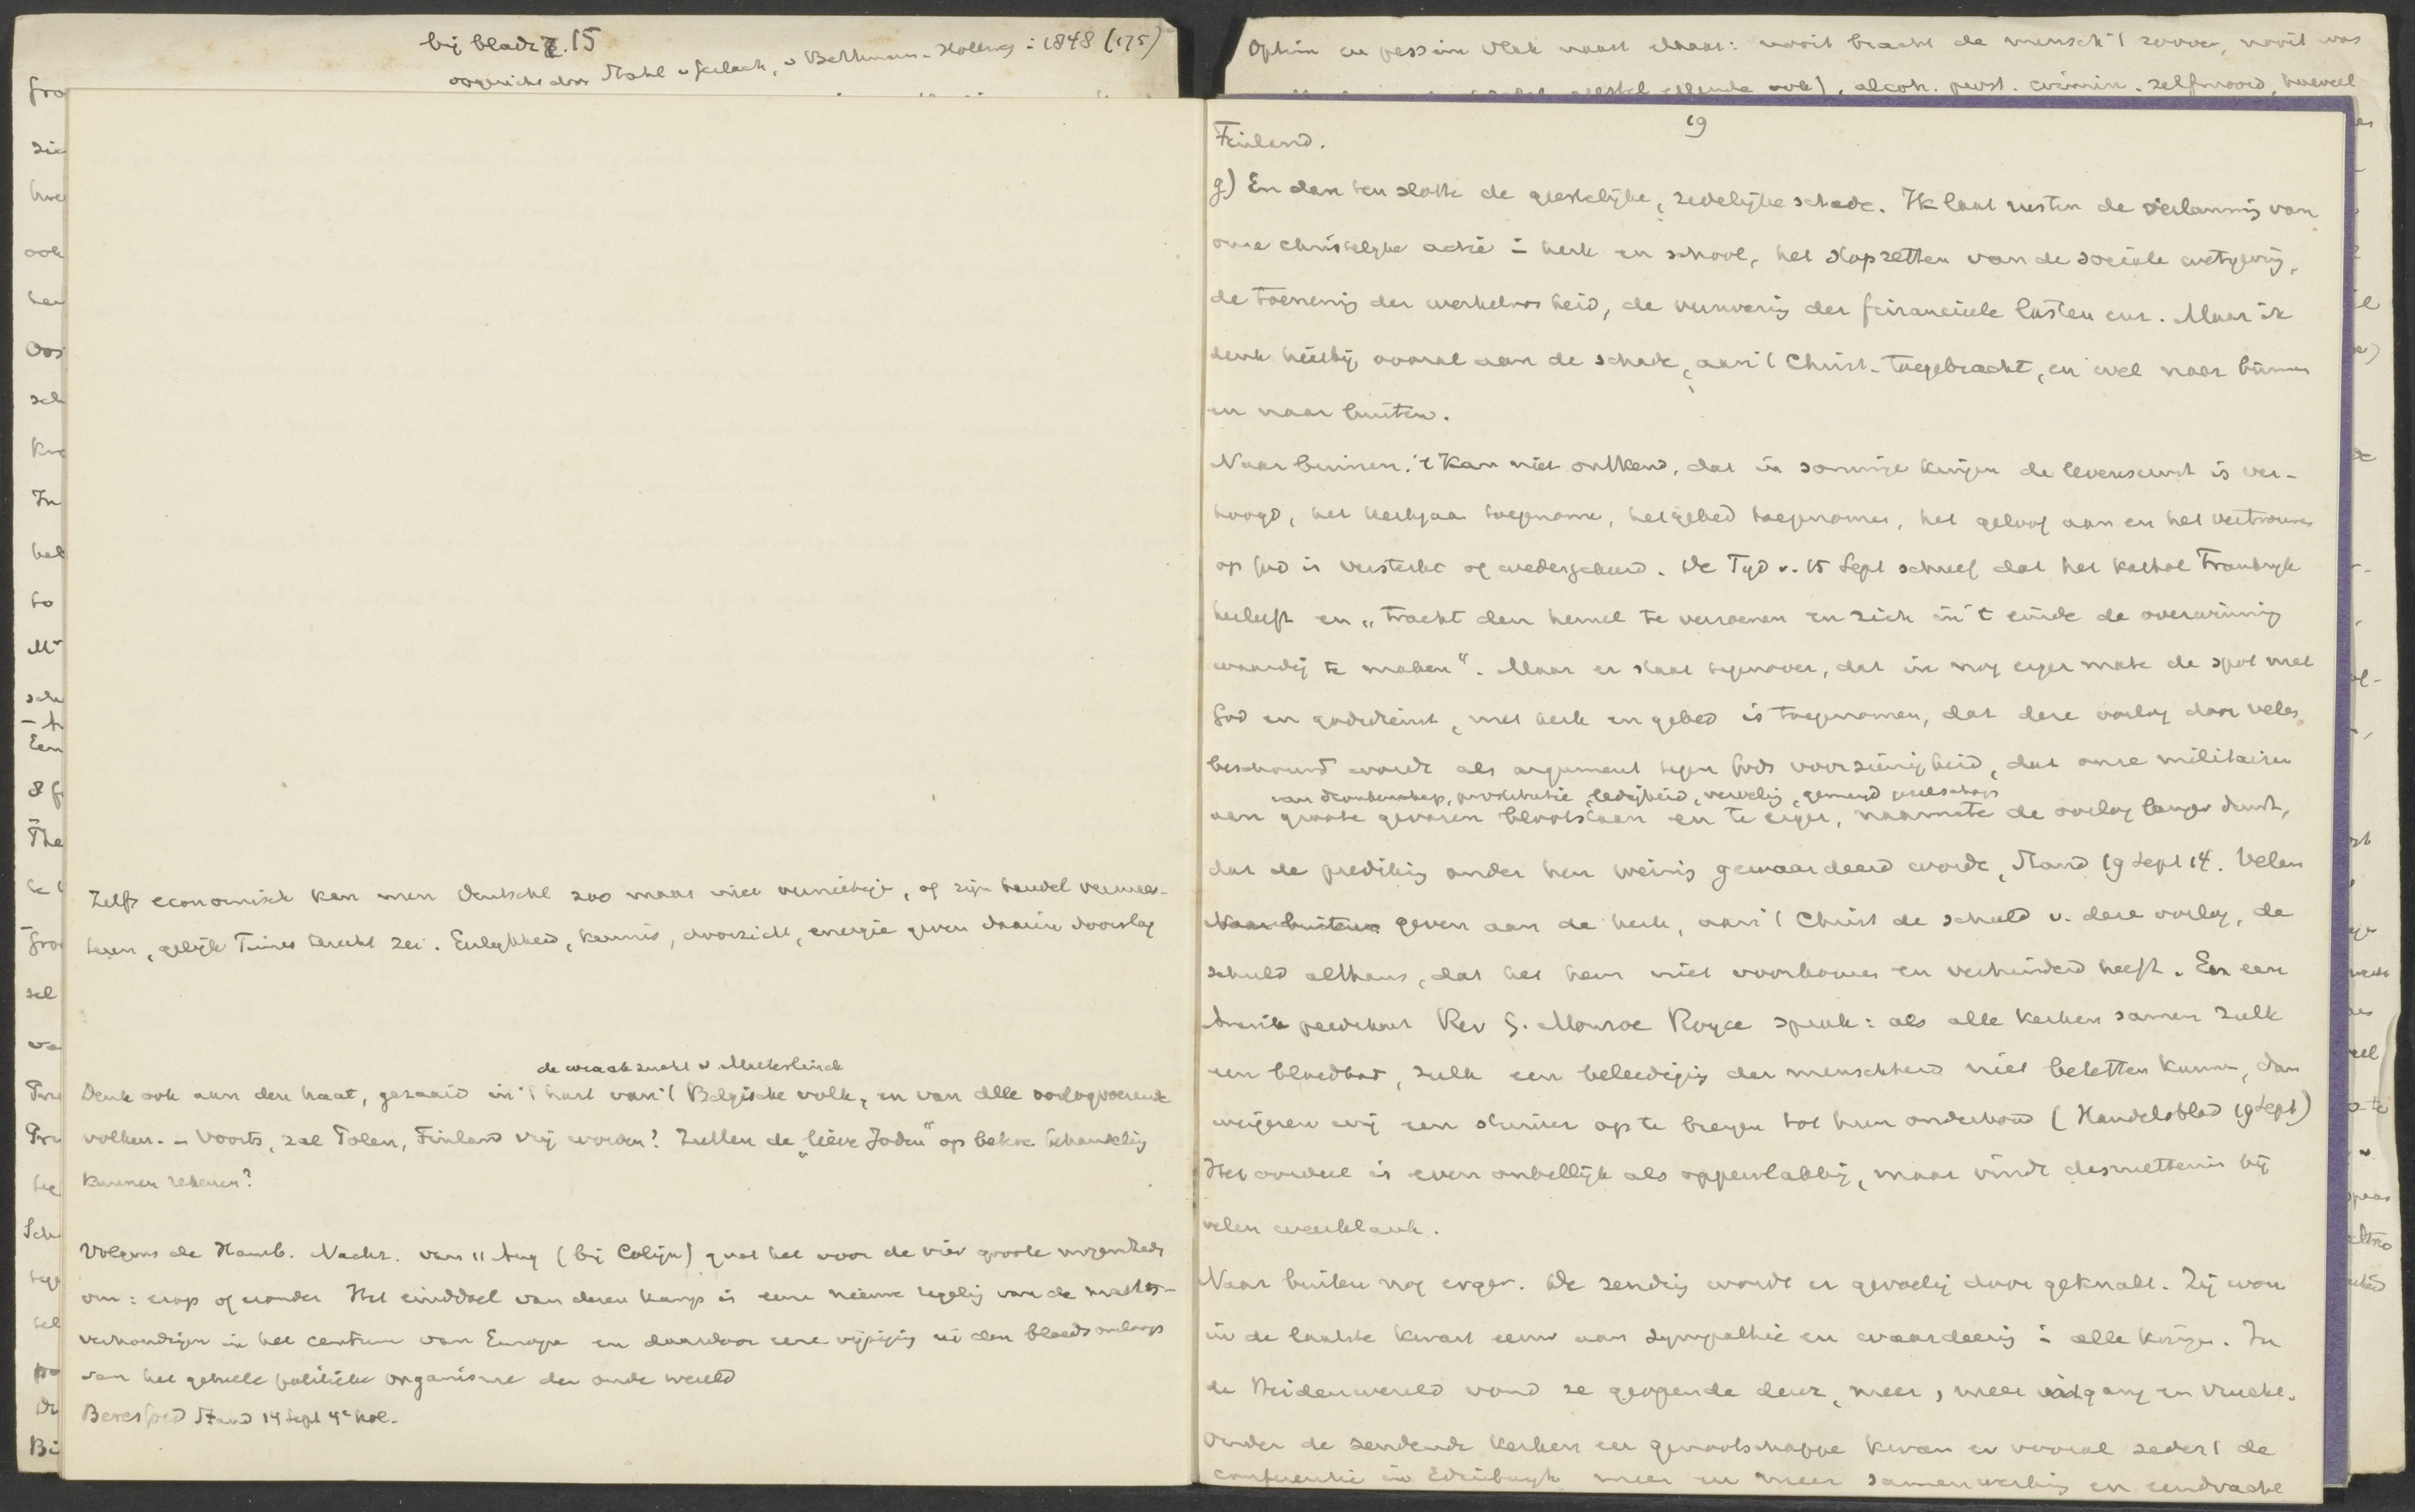 bij bladz. 15
opgericht door Stahl v Gerlach, v Bethmann-Hollweg in 1848 (175)
Zelfs economisch kan men Deutschl zoo maar niet vernietigen, of zijn handel vermees-
teren, gelijk Times terecht zei. Eerlijkheid, kennis, doorzicht, energie geven daarin doorslag
de wraakzucht v Maeterlinck
Denk ook aan den haat, gezaaid in 't hart van 't Belgische volk, en van alle oorlogvoerende
volken. - Voorts, zal Polen, Finland vrij worden? Zullen de "lieve Joden" op betere behandeling
kunnen rekenen?
Volgens de Hamb. Nachr. van 11 Aug (bij Colijn) gaat het voor de vier groote mogendheden
om: erop of eronder Het einddoel van dezen kamp is eene nieuwe regeling van de machts-
verhoudingen in het centrum van Europa en daardoor eene wijziging in den bloedsomloop
van het geheele politieke organisme der oude wereld
Beresford Stand 14 Sept 4e kol.
Optim en pessim vlak naast elkaar: nooit bracht de mensch 't zoover, nooit was
ellende ook), alcoh. prost. crimin. zelfmoord, hoeveel
19
Finland.
g) En dan ten slotte de geestelijke, zedelijke schade. Ik laat rusten de verlamming van
onze christelijke actie in kerk en school, het stopzetten van de sociale wetgeving,
de toeneming der werkeloosheid, de verzwaring der financieele lasten enz. Maar ik
denk hierbij vooral aan de schade, aan 't Christ. toegebracht, en wel naar binnen
en naar buiten.
Naar binnen. 't Kan niet ontkend, dat in sommige kringen de levensernst is ver-
hoogd, het kerkgaan toegenomen, het gebed toegenomen, het geloof aan en het vertrouwen
op God is versterkt of wedergekeerd. De Tijd v. 15 Sept schreef dat het kathol Frankrijk
herleeft en "tracht den hemel te verzoenen en zich in 't einde de overwinning
waardig te maken". Maar er staat tegenover, dat in nog erger mate de spot met
God en godsdienst, met kerk en gebed is toegenomen, dat deze oorlog door velen
beschouwd wordt als argument tegen Gods voorzienigheid, dat onze militairen
van dronkenschap, prostitutie, ledigheid, verveling, gemengd gezelschap
aan groote gevaren blootstaan en te erger, naarmate de oorlog langer duurt,
dat de prediking onder hen weinig gewaardeerd wordt, Stand 19 Sept 14. Velen
Naar buiten geven aan de kerk, aan 't Christ de schuld v. deze oorlog, de
schuld althans, dat het hem niet voorkomen en verhinderd heeft. En een
Amerik predikant Rev G. Monroe Royce sprak: als alle kerken samen zulk
een bloedbad, zulk een beleediging der menschheid niet beletten kunnen, dan
weigeren wij een stuiver op te brengen tot hun onderhoud (Handelsblad 19 Sept)
Het oordeel is even onbillijk als oppervlakkig, maar vindt desniettemin bij
velen weerklank.
Naar buiten nog erger. De zending wordt er gevoelig door geknakt. Zij won
in de laatste kwart eeuw aan sympathie en waardeering in alle kringen. In
de Heidenwereld vond ze geopende deur, meer, meer ingang en vrucht.
Onder de zendende kerken en genootschappen kwam er vooral sedert de
conferentie in Edinburgh meer en meer samenwerking en eendracht